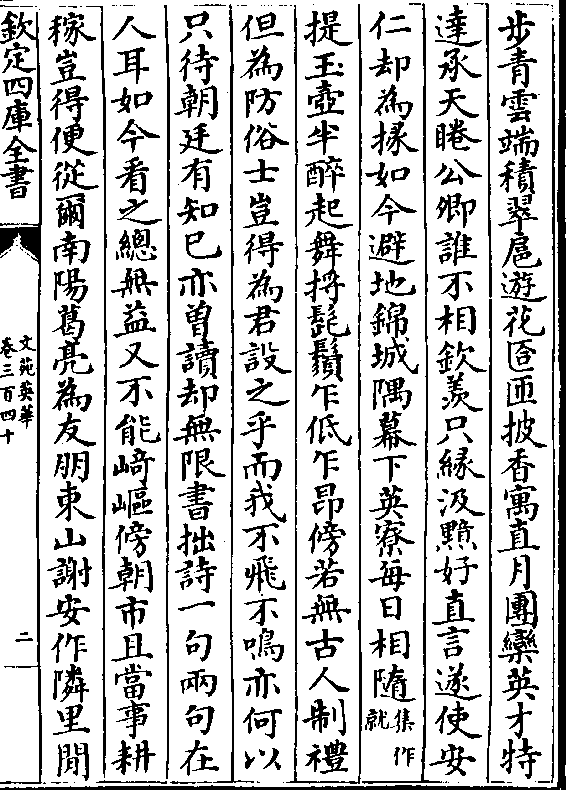 步青雲端積翠扈遊花匼匝披香寓直月團欒英才特
達承天睠公卿誰不相欽羨只縁汲黯好直言遂使安
仁却為掾如今避地錦城隅幕下英寮每日相隨集作就
提玉壺半醉起舞捋髭鬚乍低乍昂傍若無古人制禮
但為防俗士豈得為君設之乎而我不飛不鳴亦何以
只待朝廷有知已亦曽讀却無限書拙詩一句兩句在
人耳如今看之總無益又不能﨑嶇傍朝市且當事耕
稼豈得便從爾南陽葛亮為友朋東山謝安作隣里閒
欽定四庫全書
文苑英華
卷三百四十
二